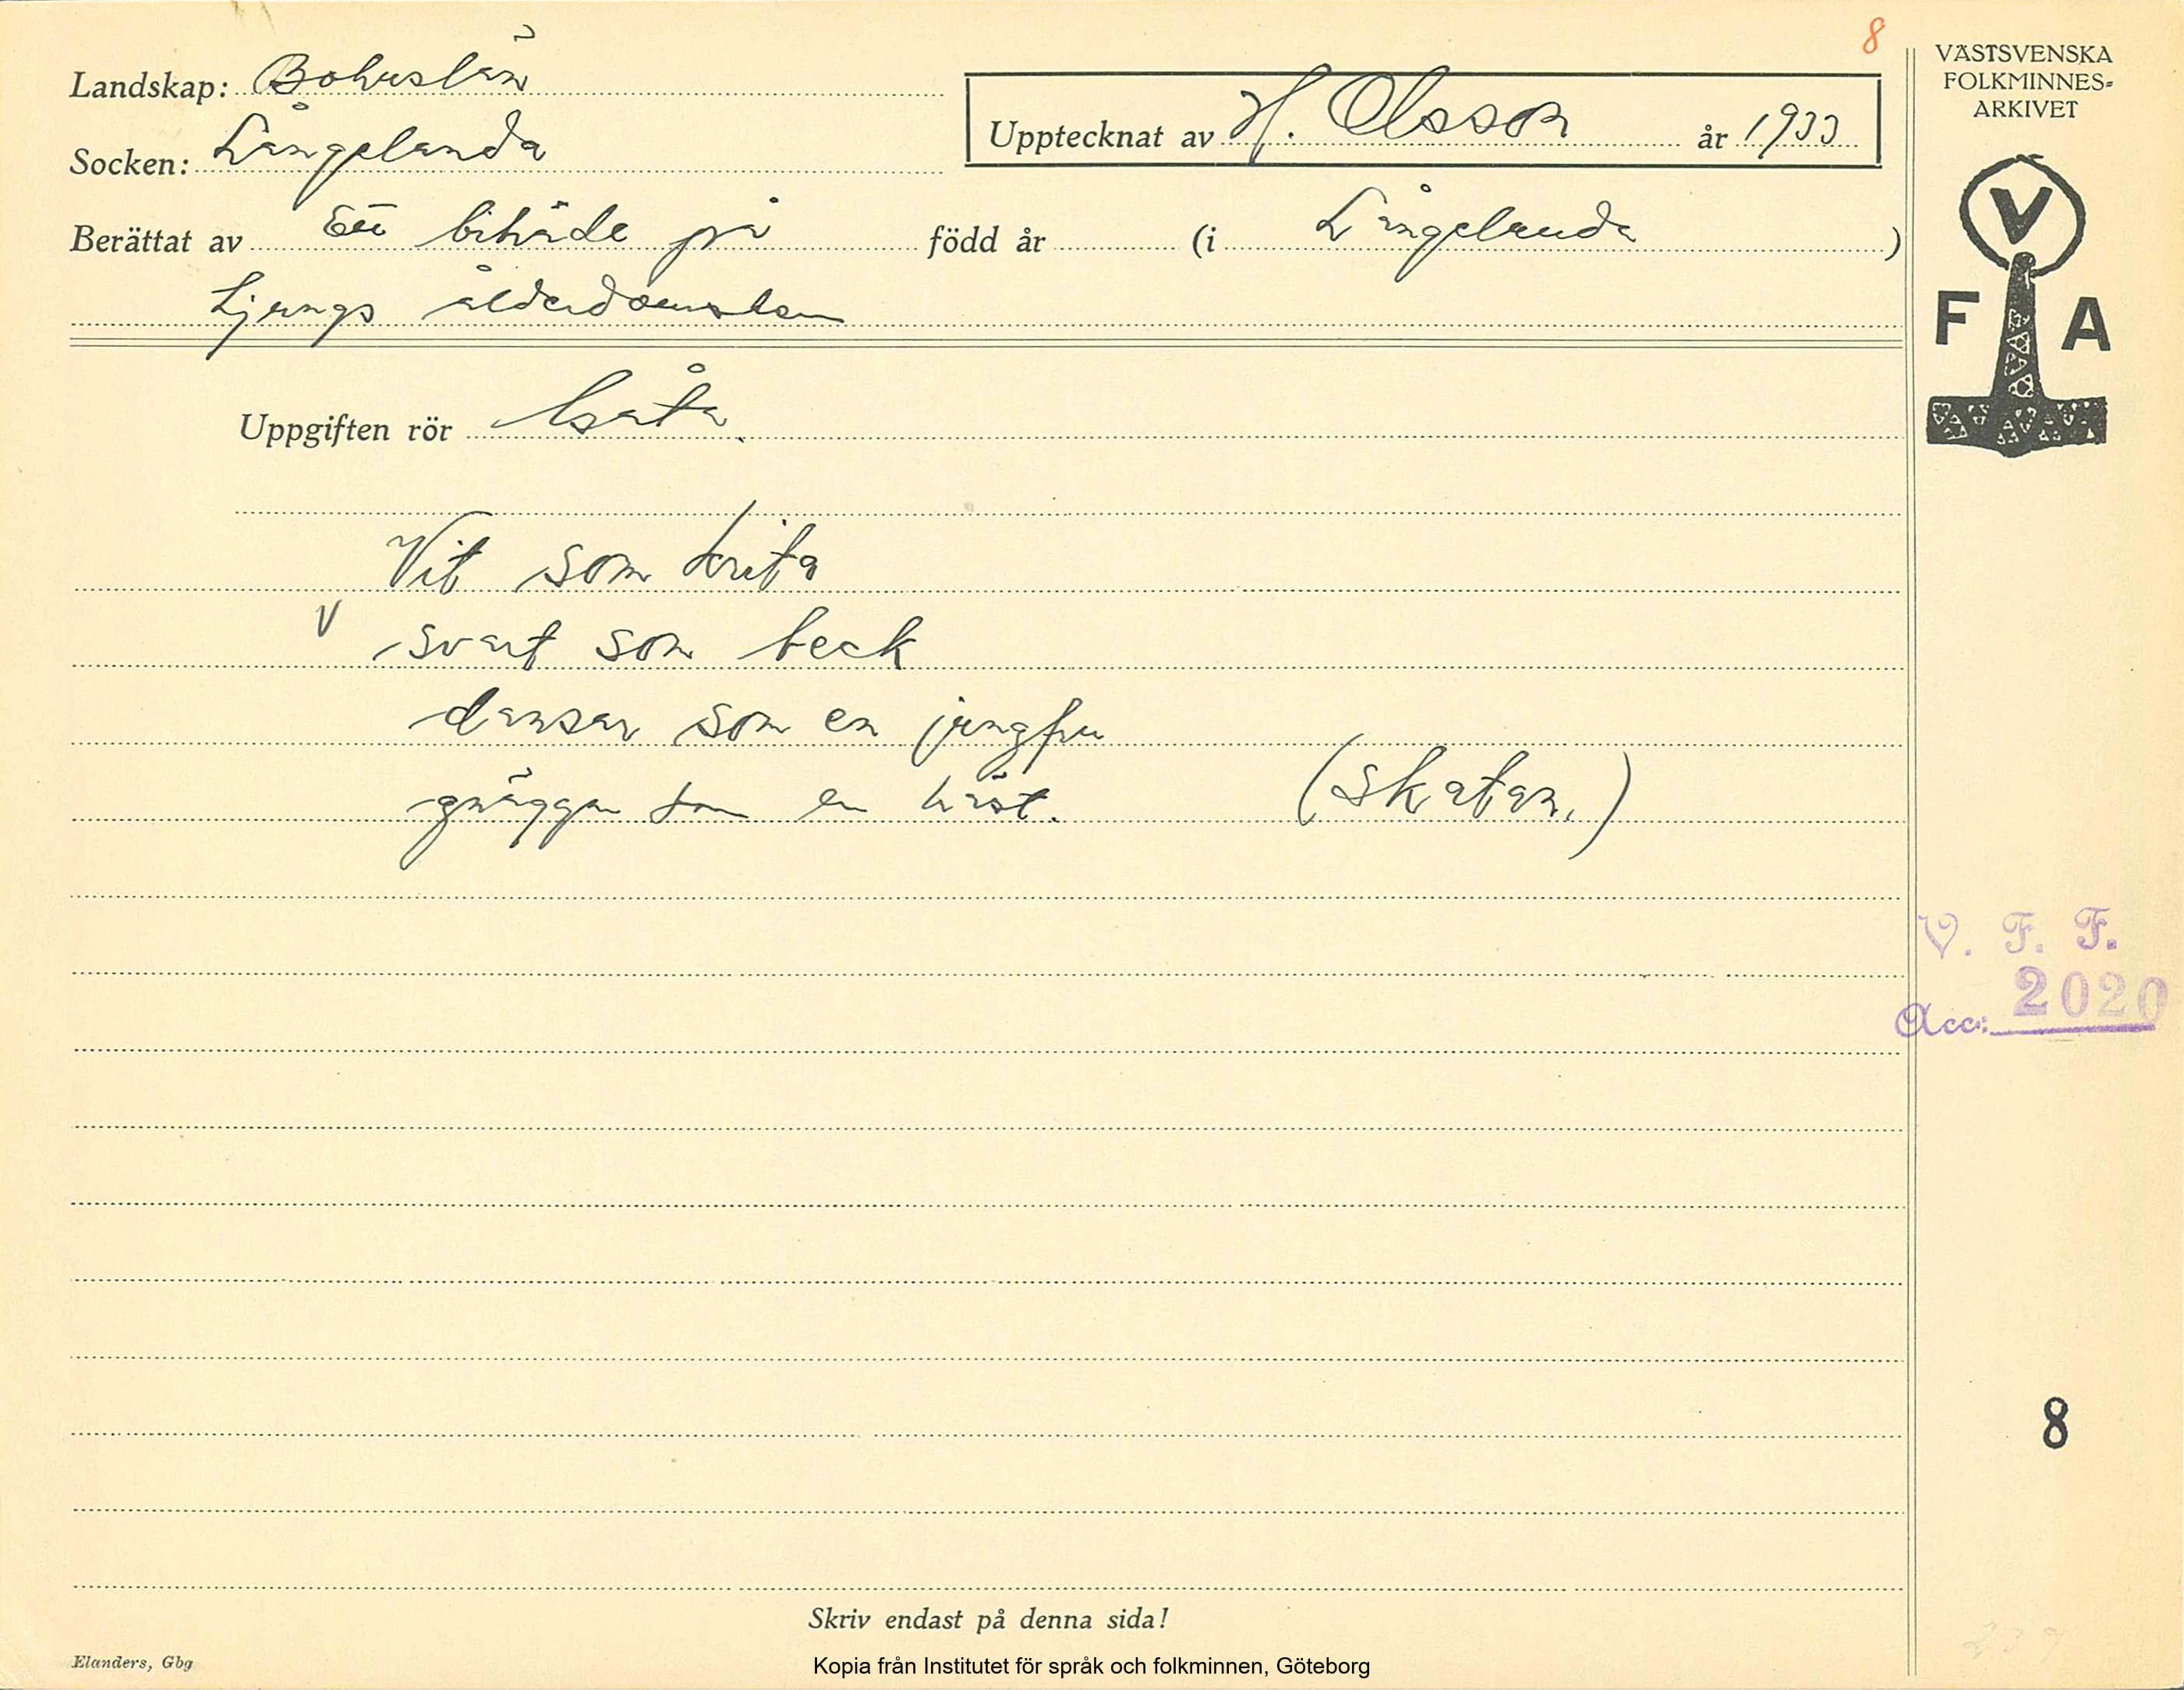 8
Landskap: Bohuslän
Socken: Långelanda
Upptecknat av H. Olsson år 1933
Berättat av Ett bihåde på född år (i Långelanda)
Ljungs ålderdomshem
Uppgiften rör Gåta.
Vit som krita
V svart som beck
dansar som en jungfru
gnäggar som en häst. (Skatan.)
VÄSTSVENSKA
FOLKMINNES-
ARKIVET
V
F A
V. F. F.
Acc: 2020
8
Skriv endast på denna sida!
Elanders, Gbg
Kopia från Institutet för språk och folkminnen, Göteborg